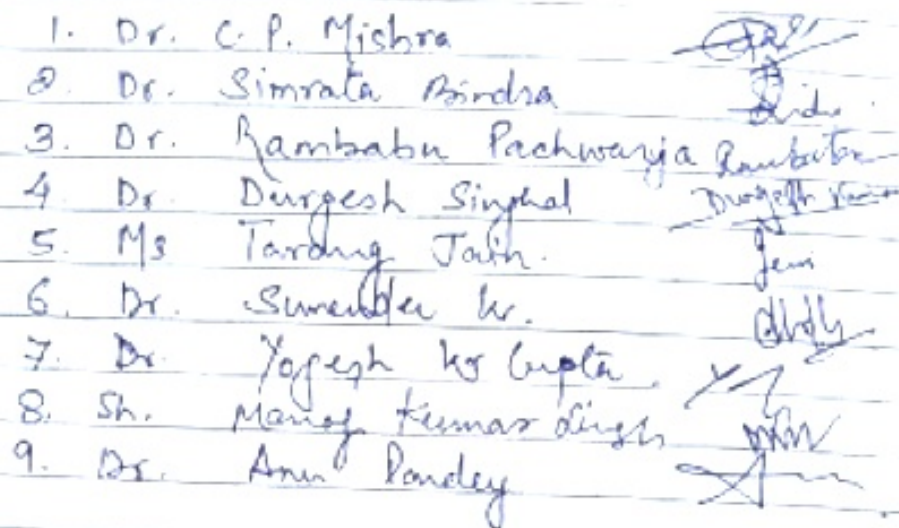 1. Dr. C. P. Mishra
2. Dr. Simrata Bindra
3. Dr. Rambabu Pachwarya Rambabu
4. Dr. Durgesh Singhal Durgesh Kumar
5. Ms Tarang Jain. Jain
6. Dr. Surender Kr.
7. Dr Yogesh Kr Gupta
8. Sh. Manoj Kumar Singh
9. Dr. Anu Pandey